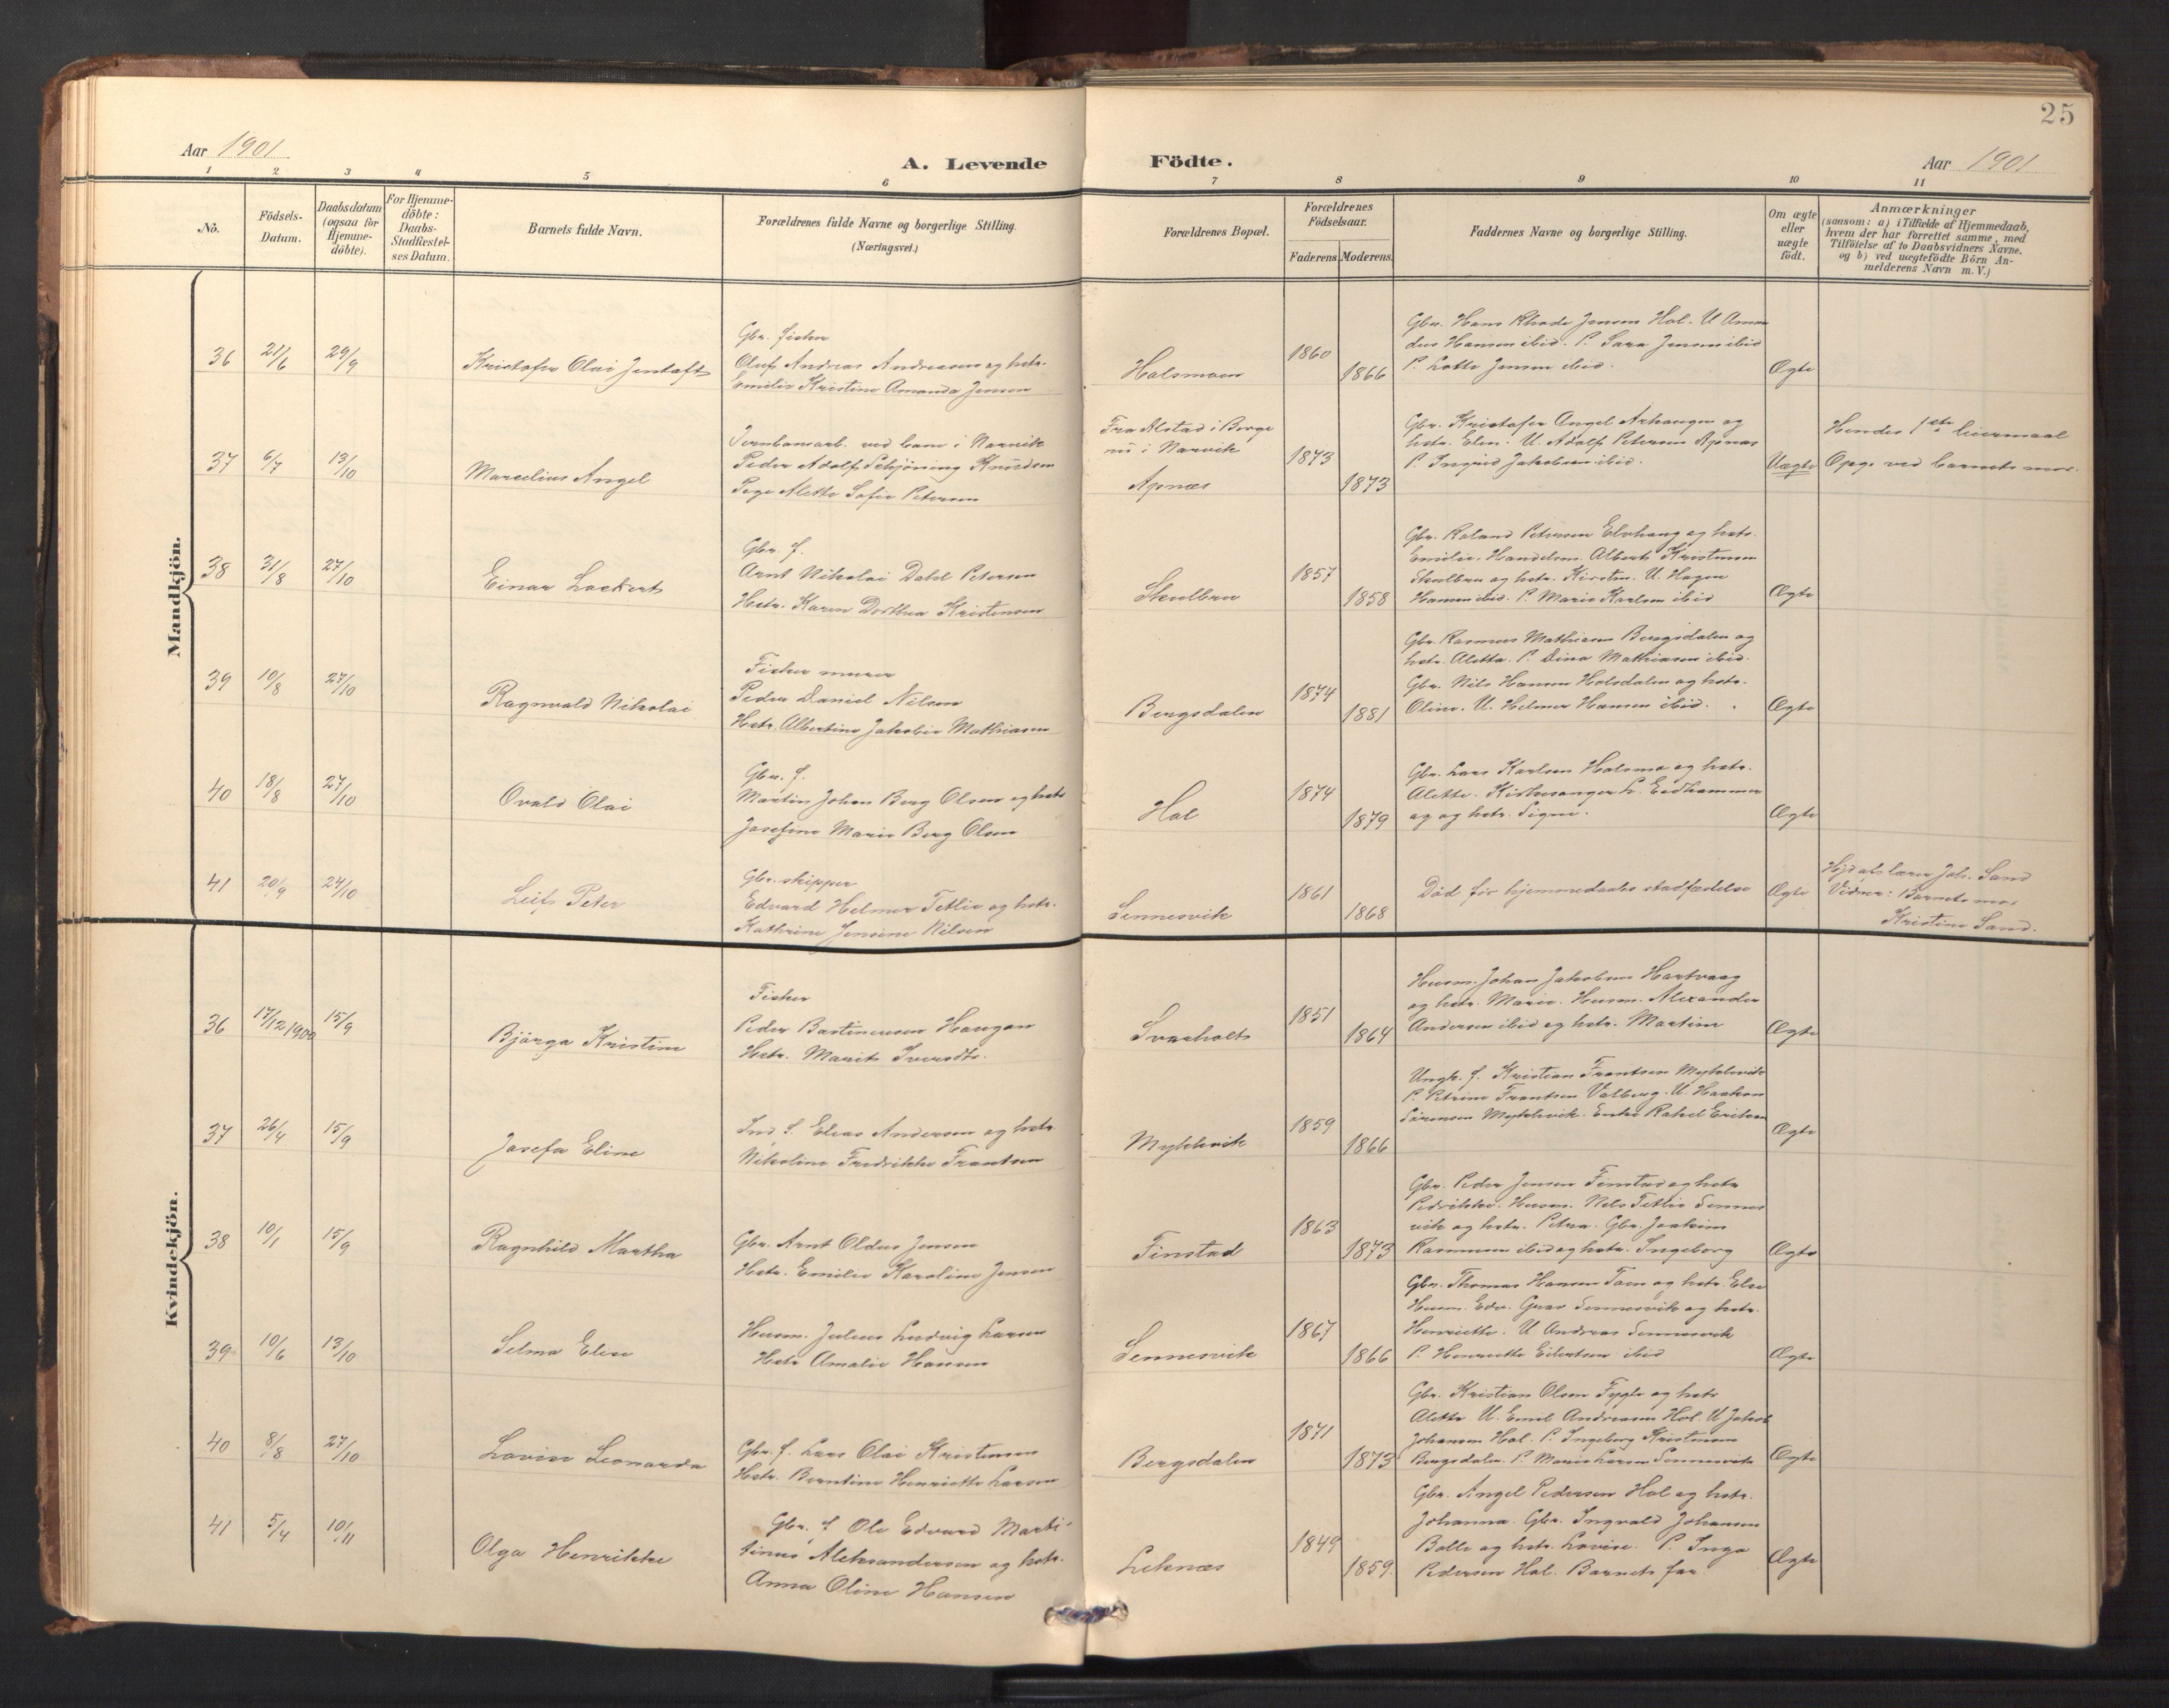 25
Aar 1901
A. Levende Födte.
Aar 1901
1 2 3 4 5 6 7 8 9 10 11
No.
Födsels-Datum.
Daabsdatum (ogsaa for Hjemme-döbte).
For Hjemme-döbte: Daabs-Stadfæstel-ses Datum.
Barnets fulde Navn.
Forældrenes fulde Navne og borgerlige Stilling.
(Næringsvei.)
Forældrenes Bopæl.
Forældrenes Födselsaar.
Faderens Moderens
Faddernes Navne og borgerlige Stilling.
Om ægte eller uægte födt.
Anmærkninger
(saasom: a) i Tilfælde af Hjemmedaab,
hvem der har forrettet samme, med
Tilföielse af to Daabsvidners Navne,
og b) ved uægtefödte Börn An-
melderens Navn m. V.)
Mandkjön.
36 21/6 29/9 Kristofer Olai Jentoft
Gbr. fisker
Oluf Andreas Andreasen og hstr.
Emilie Kristine Amanda Jensen
Halsmoen 1860 1866
Gbr. Hans Rhode Jensen Hol. U Aman
dus Hansen ibid. P. Sara Jensen ibid
P. Lotte Jensen ibid.
Ægte
37 6/7 13/10 Marcelius Angel
Jernbanearb. ved bane i Narvik
Peder Adolf Schjöning Knudsen
Pige Alette Sofie Petersen
Fra Alstad i Borge
nu i Narvik
Apnæs
1873 1873
Gbr. Kristofer Angel Arhaugen og
hstr. Elen. U. Adolf Petersen Apnæs
P. Ingrid Jakobsen ibid.
Uægte
Hendes 1ste leiermaal
Opg. ved barnets mor.
38 31/8 27/10 Einar Lockert
Gbr. f.
Arnt Nikolai Dahl Petersen
Hstr. Karen Dorthea Kristensen
Skulbru 1857 1858
Gbr. Roland Petersen Elvhaug og hstr.
Emilie. Handelsm. Albert Kristensen
Skulbru og hstr. Kirstin. U. Hagen
Hansen ibid. P. Marie Karlsen ibid
Ægte
39 10/8 27/10 Ragnvald Nikolai
Fisker murer
Peder Daniel Nilsen
Hstr. Albertine Jakobie Mathiasen
Bergsdalen 1874 1881
Gbr. Rasmus Mathiasen Bergsdalen og
hstr. Aletta. P. Dina Mathiasen ibid.
Gbr. Nils Hansen Holsdalen og hstr.
Oline. U. Helmer Hansen ibid.
Ægte
40 18/8 27/10 Ovald Olai
Gbr. f.
Martin Johan Berg Olsen og hstr
Josefine Marie Berg Olsen
Hol 1874 1879
Gbr. Lars Karlsen Halsmo og hstr.
Alette. Kirkesanger L. Eidhammer
og og hstr. Signe.
Ægte
41 20/9 24/10 Leif Peter
Gbr. skipper
Edvard Helmer Tetlie og hstr.
Kathrine Jensine Nilsen
Sennesvik 1861 1868
Död för hjemmedaabs stadfæstelse
Ægte
Hjd af lærer Joh. Sand
Vidner: Barnets mor
Kristine Sand.
Kvindekjön.
36 17/12 1900 15/9 Bjarga Kristine
Fisker
Peder Bastineusen Haugan
Hstr. Marit Iversdtr.
Svarholt 1851 1864
Husm. Johan Jakobsen Hartvaag
og hstr. Marie. Husm. Alexander
Andersen ibid og hstr. Martine
Ægte
37 26/4 15/9 Josefa Eline
Ind f. Elias Andersen og hstr
Nikoline Fredrikke Frantsen
Myklevik 1859 1866
Ungk. f. Kristian Frantsen Myklevik
P. Petrine Frantsen Valberg. U. Haakon
Sörensen Myklevik. Enke Rakel Eriksen
Ægte
38 10/1 15/9 Ragnhild Martha
Gbr. Arnt Oldus Jensen
Hstr. Emilie Karoline Jensen
Finstad 1863 1873
Gbr. Peder Jensen Finstad og hstr
Pedrikke. Husm. Nils Tetlie Sennes
vik og hstr. Petra. Gbr. Joakim
Rasmusen ibid og hstr. Ingeborg
Ægte
39 10/6 13/10 Selma Elise
Husm. Julius Ludvig Larsen
Hstr Amalie Hansen
Sennesvik 1867 1866
Gbr. Thomas Hansen Toen og hstr. Else
Husm. Edv. Grav Sennesvik og hstr.
Henriette. U Andreas Sennesvik
P. Henriette Eilertsen ibid
Ægte
40 8/8 27/10 Lovise Leonarda
Gbr. f. Lars Olai Kristensen
Hstr. Berntine Henriette Larsen
Bergsdalen 1871 1873
Gbr. Kristian Olsen Fygle og hstr
Alette. U. Emil Andreasen Hol. U Jakob
Johansen Hol. P. Ingeborg Kristensen
Bergsdalen. P. Marie Larsen Sennesvik
Ægte
41 5/4 10/11 Olga Henrikke
Gbr. f Ole Edvard Marti
tinus Aleksandersen og hstr.
Anna Oline Hansen
Leknæs 1849 1859.
Gbr. Angel Pedersen Hol og hstr.
Johanna. Gbr. Ingvald Johansen
Bolle og hstr. Lovise. P. Inga
Pedersen Hol. Barnets far.
Ægte